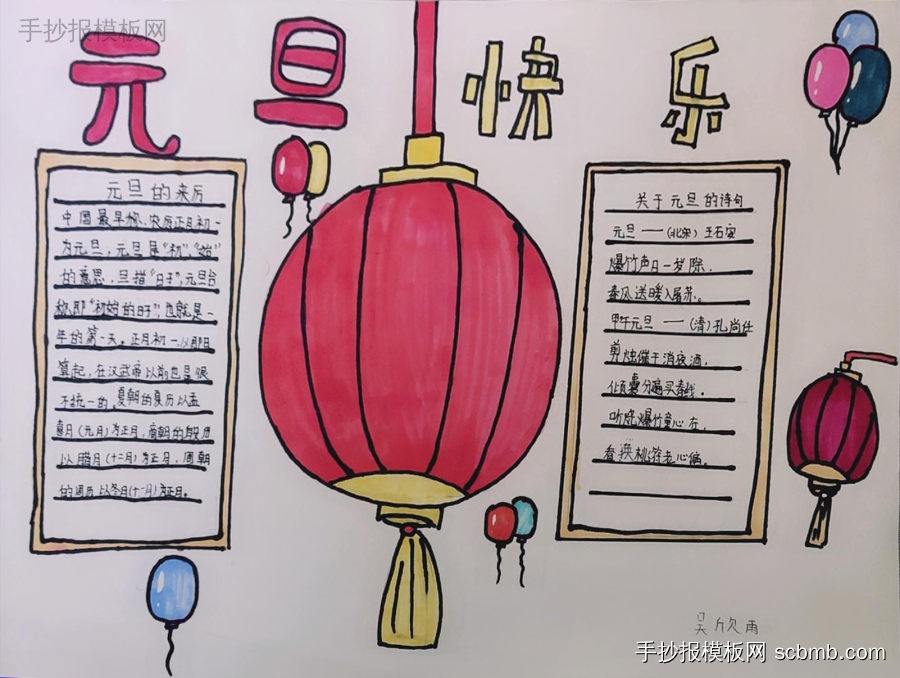 手抄报模板网
元旦快乐
元旦的来历
中国最早称,农历正月初一
为元旦,元旦是“初”、“始”
的意思,旦指“日子”,元旦合
称即“初始的日子”,也就是一
年的第一天。正月初一从哪日
算起,在汉武帝以前也是很
不统一的。夏朝的夏历以孟
喜月(元月)为正月,商朝的殷历
以腊月(十二月)为正月,周朝
的周历以冬月(十一月)为正月。
关于元旦的诗句
元旦——(北宋)王石安
爆竹声日一岁除,
春风送暖入屠苏。
甲午元旦——(清)孔尚任
剪烛催干消夜酒,
倾囊分遍买春钱。
听烧爆竹童心在,
看换桃符老心偏。
吴欣雨
手抄报模板网 scbmb.com